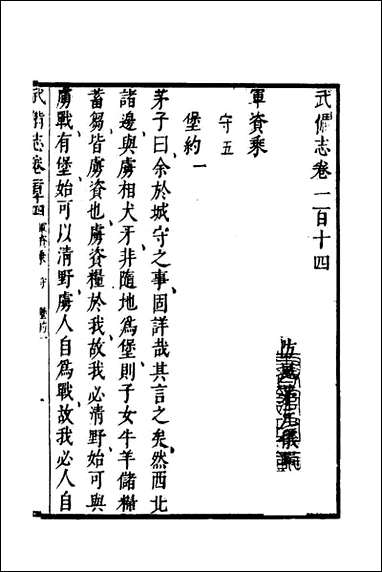 武備志卷一百十四
防風茅元儀輯
軍資乘
守五
堡約一
茅子曰余於城守之事固詳哉其言之矣然西北
諸邊與虜相犬牙非隨地為堡則子女牛羊儲糧
蓄芻皆虜資也虜資糧於我故我必清野始可與
虜戰有堡始可以清野虜人自為戰故我必人自
武備志卷一百十四 軍資乘 守 堡約一